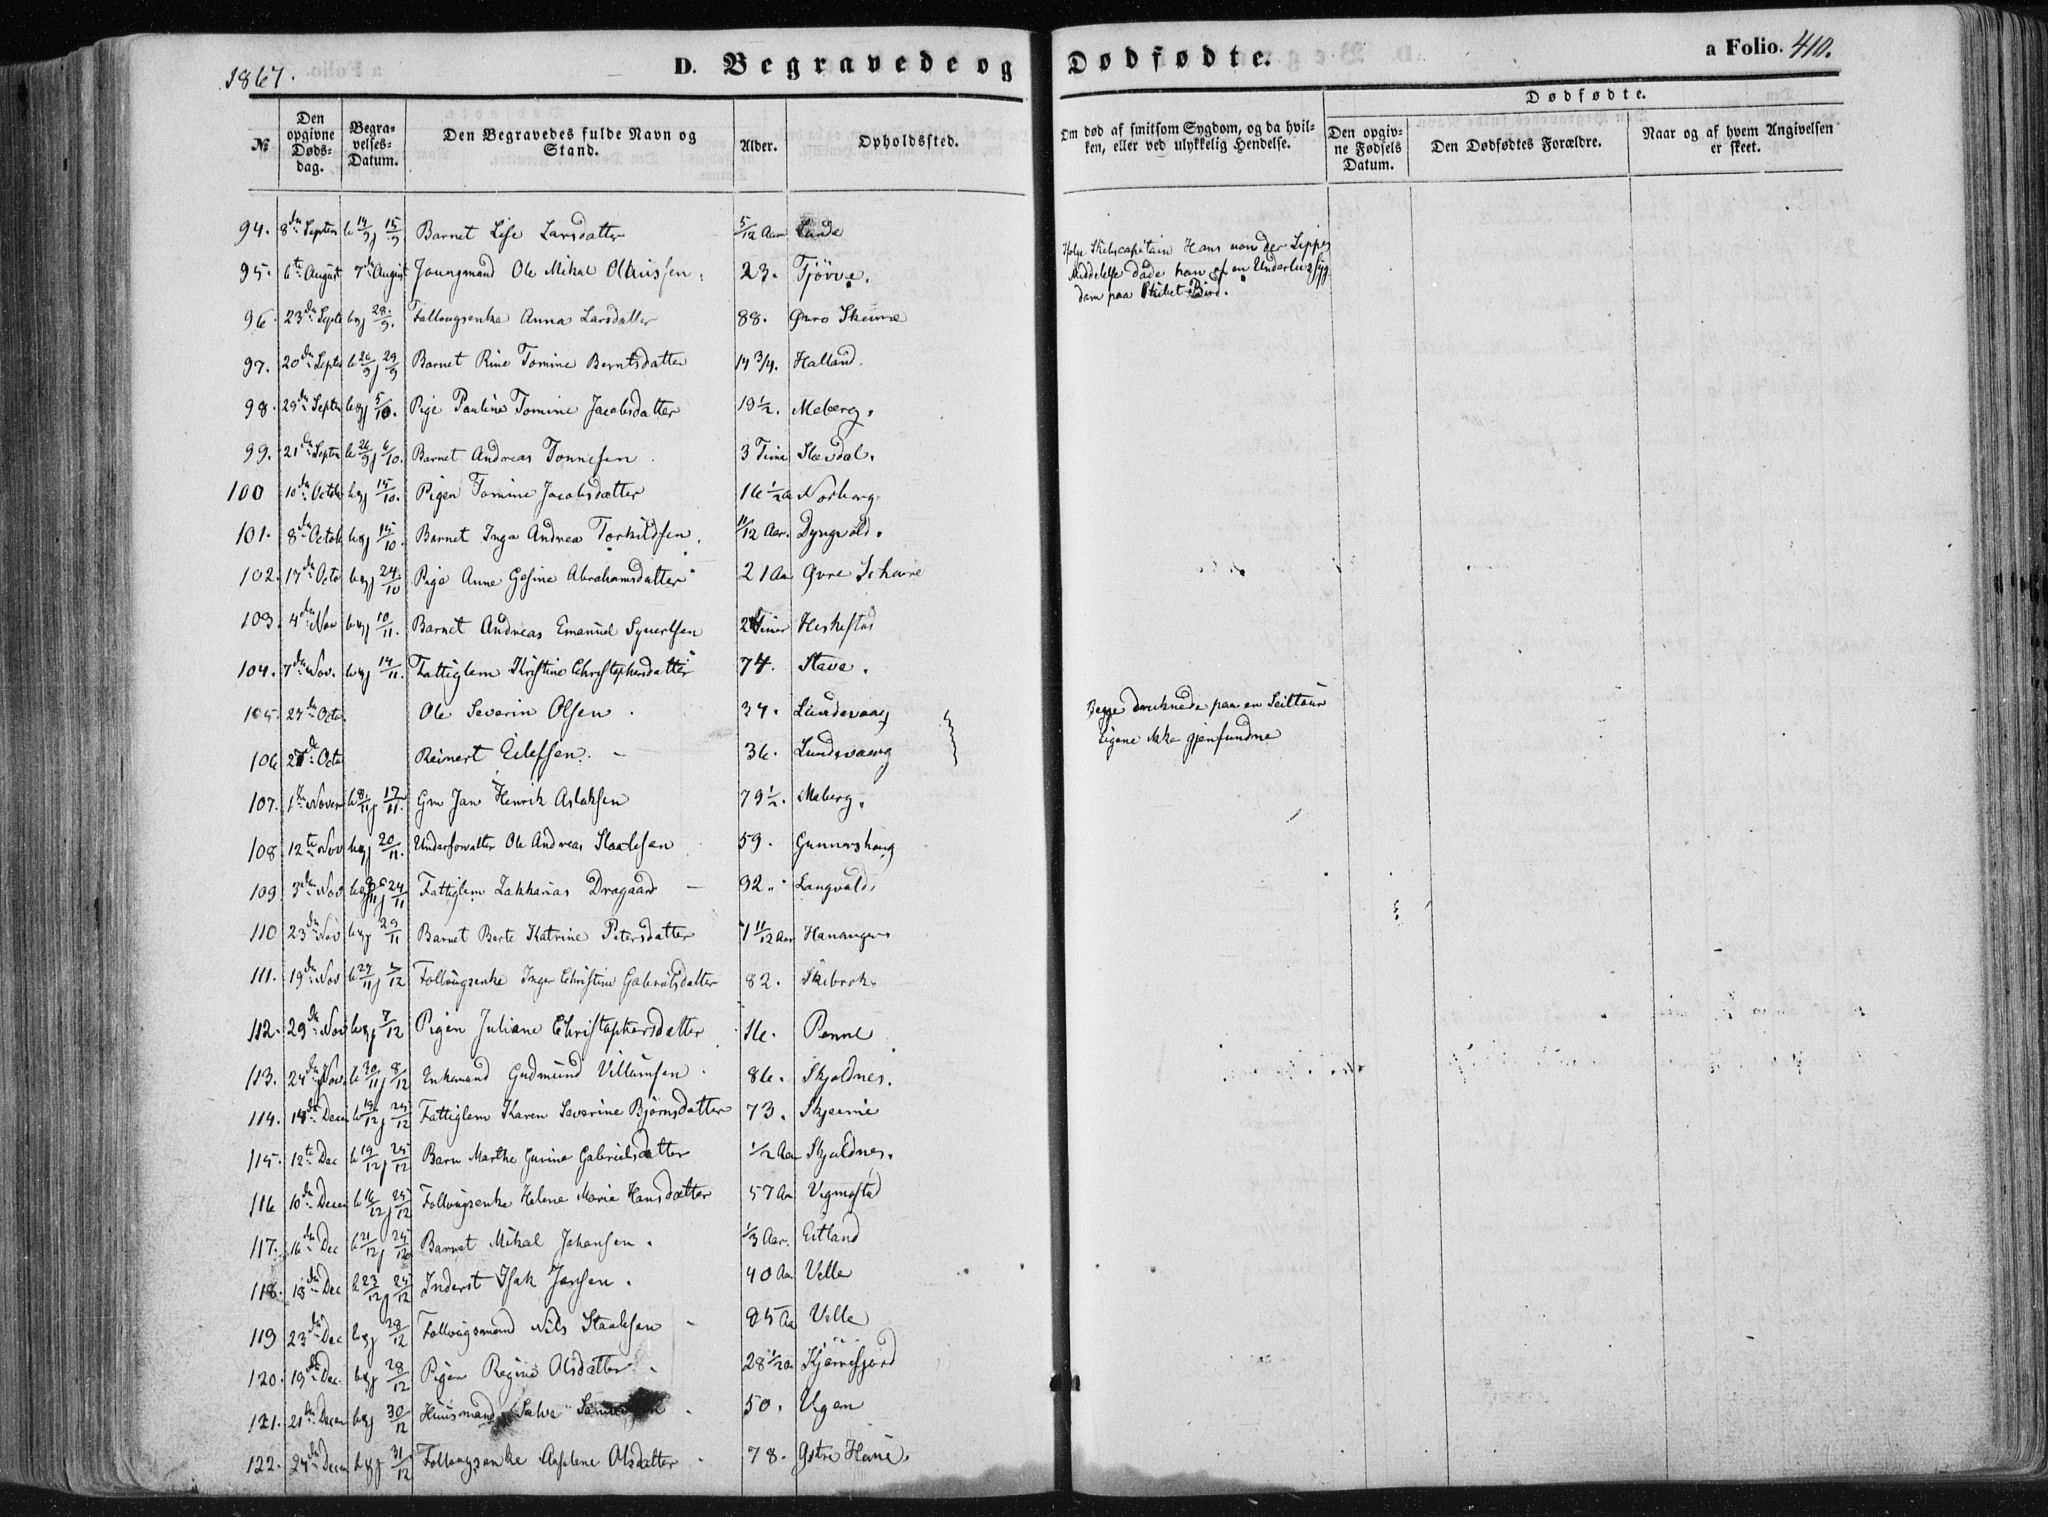 1867.
D. Begravede og Dødfødte.
a Folio. 410.
Dødfødte.
№
Den opgivne Døds-dag.
Begra-velses-Datum.
Den Begravedes fulde Navn og Stand.
Alder.
Opholdssted.
Om død af smitsom Sygdom, og da hvil-ken, eller ved ulykkelig Hendelse.
Den opgiv-ne Fødsels Datum.
Den Dødfødtes Forældre.
Naar og af hvem Angivelsen er skeet.
94. 8de Septem b 14/9 j 15/9 Barnet Lise Larsdatter 5/12 Aar
95. 6te August 7de August Joungmand Ole Mikal Olaussen. 23. Tjövve.
Skibscapitain Hans von der Lippes
Middelelse døde han af en Underlivssyg
dom paa Skibet Bird.
96. 23de Septe beg 28/9. Follougsenke Anna Larsdatter 88. Skeime
97. 20de Septe b 26/9 j 29/9 Barnet Rine Tomine Berntsdatter 14 3/4. Halland.
98. 29de Septem beg 5/10. Pige Pauline Tomine Jacobsdatter 19 1/2. Meberg.
99. 21de Septem b 26/9 j 6/10. Barnet Andreas Tonnesen 3 Time
100 10de Octob beg 15/10. Pigen Tomine Jacobsdatter 16 1/2 a Norberg
101. 8de Octob beg 15/10. Barnet Inga Andrea Torkildsen. 11/12 Aar. Dyngvold.
102. 17de Octo beg 24/10 Pige Anne Gesine Abrahamsdatter 21 Aa Øvre
103. 4de Nov beg 10/11. Barnet Andreas Emanuel Syvertsen 2 Timer Heskestad
104. 7de Nov. beg 14/11. Fattiglem Kristine Christophersdatter 74. Stave.
105. 27de Octo. Ole Severin Olsen. 34. Lundevaag
Begge druknede paa en Seiltour
106 27de Octo Reinert Eilefsen. 36. Lundevaag
Ligene ikke gjenfundne
107. 1te Novem b 8/11 j 17/11. Gm Jan Henrik Aslaksen 79 1/2. Meberg.
108 12te Nov beg 20/11. Underforvalter Ole Andreas Staalesen 59. Gunnershoug
109 3de Nov 24/11 Fattiglem Zakkarias Dragaard 92. Langvold.
110 23de Nov beg 29/11 Barnet Berte Katrine Petersdatter 1 11/12 Aar Hananger
111. 19de Nov b 29/11 j 7/12 Follougsenke Inger Christine Gabrielsdatter 82. Skibrok.
112. 29de Nov beg 7/12 Pigen Juliane Christophersdatter 16. Penne
113. 24de Nov. b 30/11 j 8/12 Enkemand Gudmund Villumsen. 86. Skjoldnes.
114. 18de Decem b 19/12 j 25/12 Fattiglem Karen Severine Bjørnsdatter 73. Skjeime
115. 12te Dec b 19/12 j 25/12 Barn Marthe Gurine Gabrielsdatter 1/2 Aar Skjoldnes.
116 10de Decem b 16/12 j 25/12 Follougsenke Helene Marie Hansdatter 57 Aa Vigmostad
117. 16de Dec b 21/12 j 25/12 Barnet Mikal Johansen. 1/3 Aar. Eitland
118. 18de Dec b 23/12 j 25/12 Inderst Isak Jansen. 40 Aa Velle
119 23de Dec beg 28/12 Follougsmand Nils Staalesen 85 Aa Velle
120. 19de Dec. beg 28/12 Pigen Regine Olsdatter. 28 1/2 Aa Kjørrefjord
121. 21de Decem beg 30/12 Huusmand Salve 50. Vigen
122. 24de Decem beg 31/12 Follougsenke Olsdatter 78. Østre Haue.